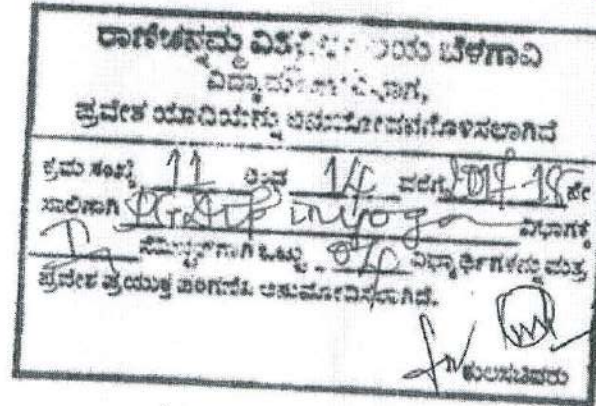 ರಾಣಿಚನ್ನಮ್ಮ ವಿಶ್ವವಿದ್ಯಾಲಯ ಬೆಳಗಾವಿ
ವಿಭಾಗ,
ಪ್ರವೇಶ ಯಾದಿಯನ್ನು ಅನುಮೋದನಗೊಳಿಸಲಾಗಿದೆ
ಕ್ರಮ ಸಂಖ್ಯೆ 11 ರಿಂದ 14 ವರೆಗೆ 2017-18 ನೇ
ಸಾಲಿಗಾಗಿ PG Dip in yoga ವಿಭಾಗಕ್ಕೆ
I ಸೆಮಿಸ್ಟರ್‌ಗಾಗಿ ಒಟ್ಟು 04 ವಿದ್ಯಾರ್ಥಿಗಳನ್ನು ಮಾತ್ರ
ಪ್ರವೇಶ ಪ್ರಯುಕ್ತ ಅನುಮೋದಿಸಲಾಗಿದೆ.
ಕುಲಸಚಿವರು